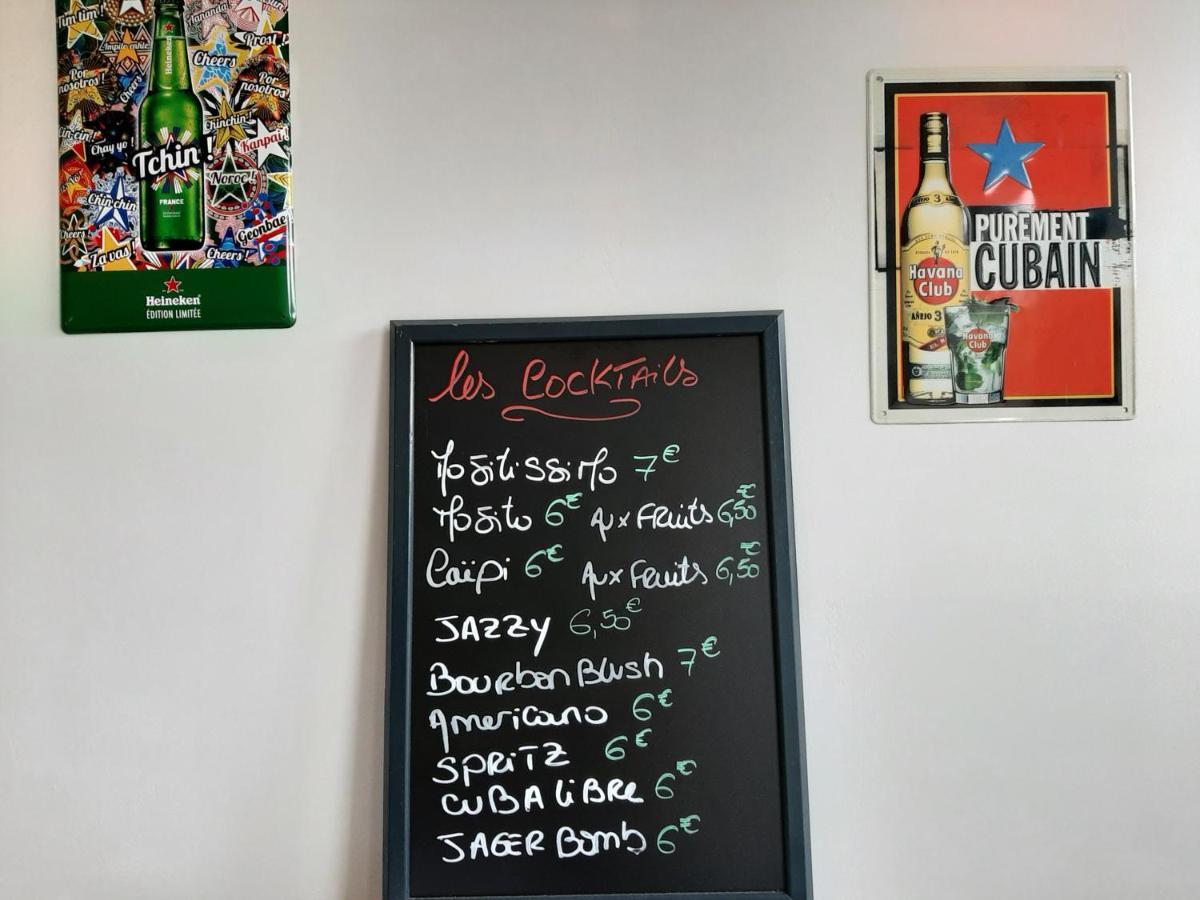 Tim tim!
Prost!
Cheers
Por nosotros!
Cheers
Por nosotros!
Chinchin!
Kanpai!
Chay yo!
Tchin!
Noroc!
Chin chin
FRANCE
Geonbae
Cheers!
Za vas!
Cheers!
Heineken
Heineken
ÉDITION LIMITÉE
AÑEJO 3
PUREMENT
CUBAIN
Havana
Club
AÑEJO 3
Havana
Club
les COCKTAils
Mojitissimo 7€
Mojito 6€ Aux Fruits 6,50€
Caïpi 6€ Aux Fruits 6,50€
JAZZY 6,50€
Bourbon Blush 7€
Americano 6€
SPRiTZ 6€
CUBA LiBRE 6€
JAGER Bomb 6€